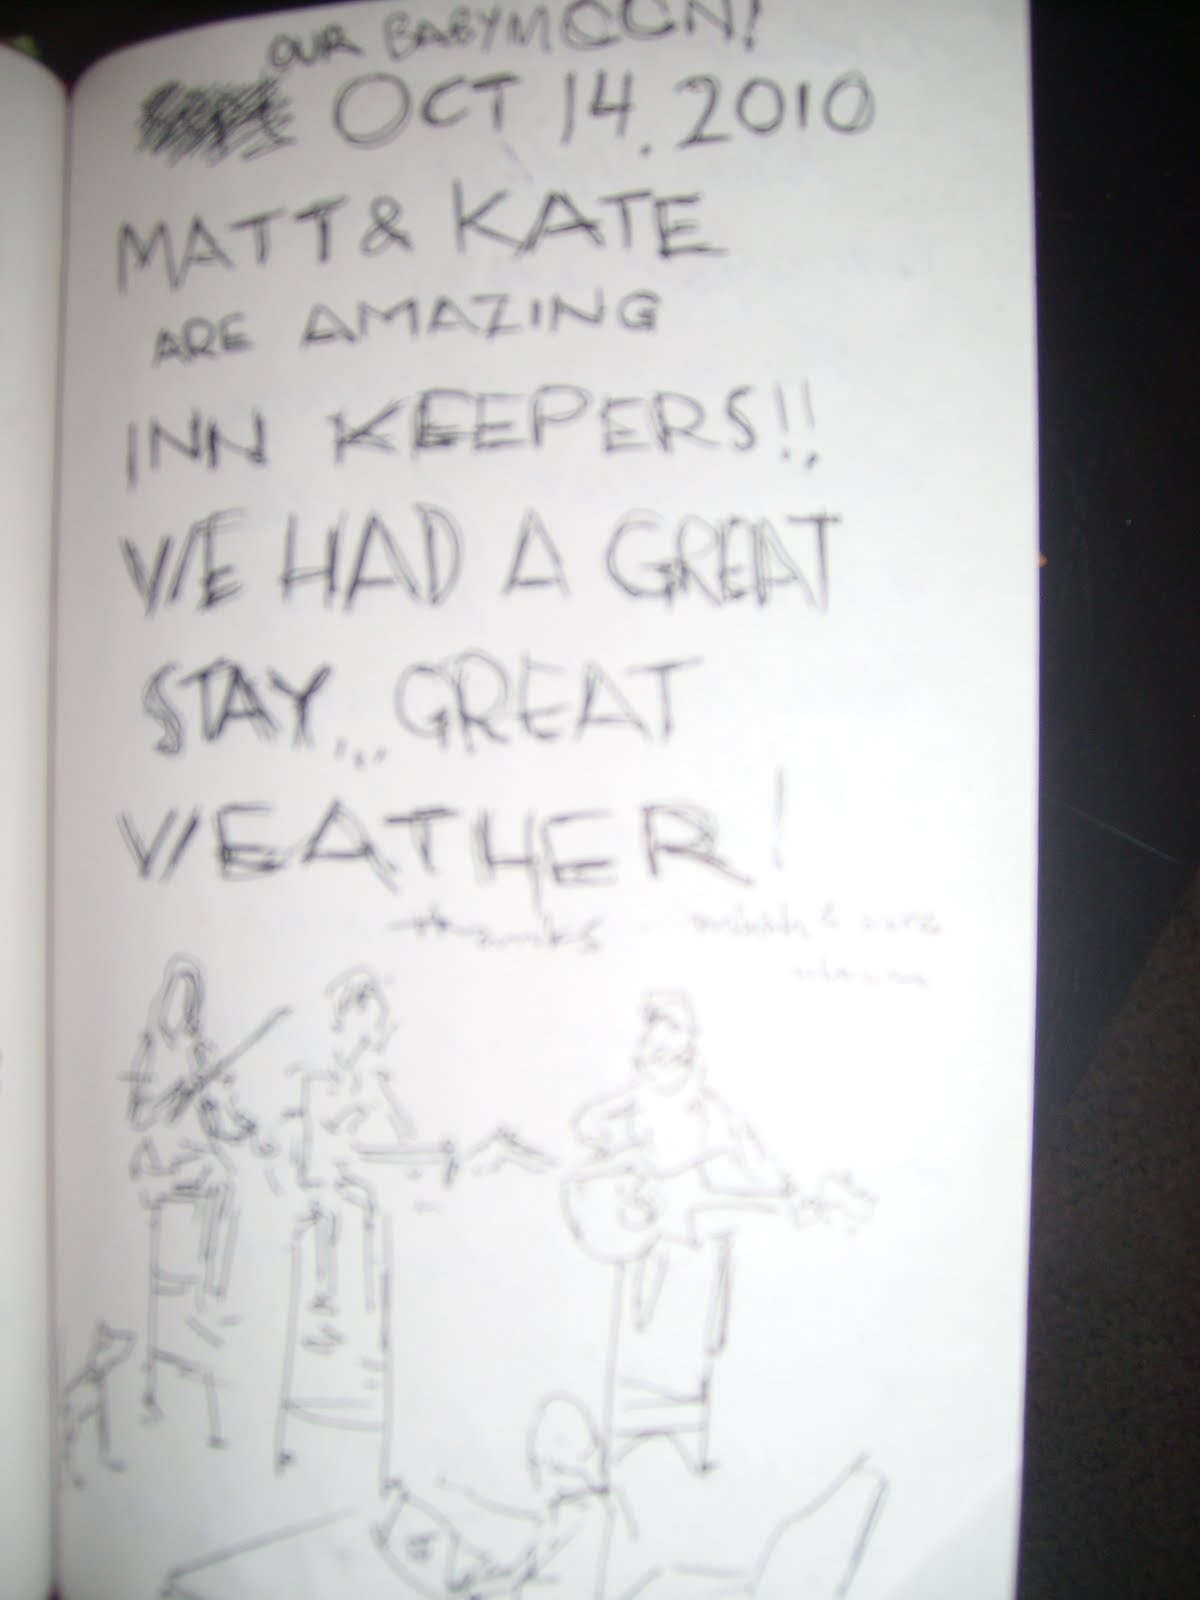 OUR BABYMOON!
OCT 14, 2010
MATT & KATE
ARE AMAZING
INN KEEPERS!!
WE HAD A GREAT
STAY... GREAT
WEATHER!
thanks